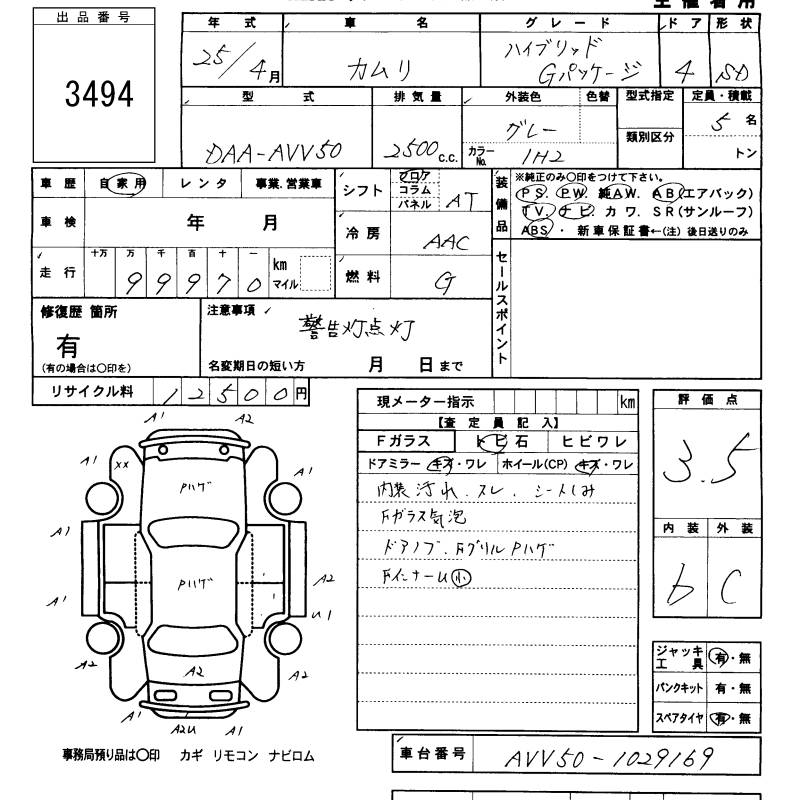 主催者用
出品番号
3494
年式 車名 グレード ドア 形状
25/4月 カムリ ハイブリッド
Gパッケージ 4 SD
型式 排気量 外装色 色替 型式指定 定員・積載
DAA-AVV50 2500c.c. グレー 5名
カラーNo. 1H2 類別区分 トン
車歴 自家用 レンタ 事業.営業車
車検 年 月
走行 十万 万 千 百 十 一
99970 km マイル
シフト フロア コラム パネル AT
冷房 AAC
燃料 G
装備品
※純正のみ○印をつけて下さい。
PS. PW. 純AW. AB(エアバック)
TV. ナビ. カワ. SR(サンルーフ)
ABS ・ 新車保証書←(注) 後日送りのみ
セールスポイント
修復歴 箇所
有
(有の場合は○印を)
注意事項
警告灯点灯
名変期日の短い方 月 日まで
リサイクル料 12500円
現メーター指示 km
【査定員記入】
Fガラス トビ石 ヒビワレ
ドアミラー キズ・ワレ ホイール(CP) キズ・ワレ
内装汚れ.スレ.シートしみ
Fガラス気泡
ドアノブ.FグリルPハゲ
FインナーU小
評価点
3.5
内装 外装
b C
ジャッキ工具 有・無
パンクキット 有・無
スペアタイヤ 有・無
A1 A2
A1 XX A1
Pハゲ
A1
Pハゲ
A1 A2
U1
A2 A2 A2
A1 A2U A1
事務局預り品は○印 カギ リモコン ナビロム
車台番号 AVV50-1029169